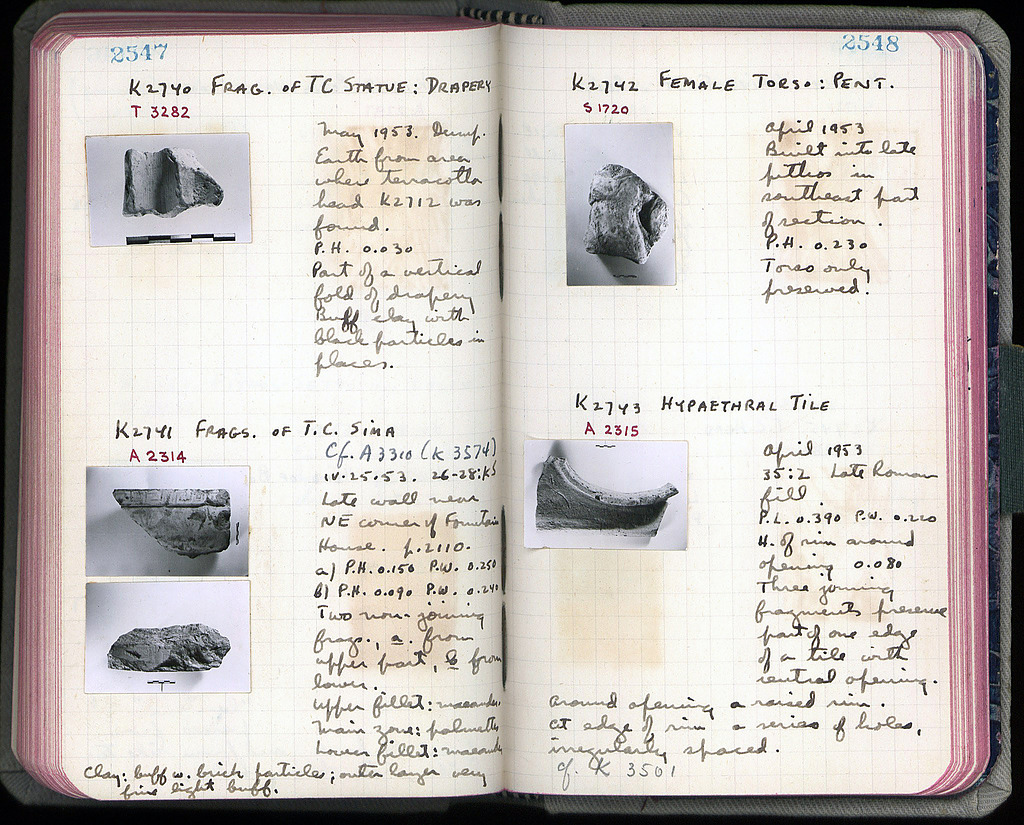 2547
K2740 FRAG. OF TC STATUE: DRAPERY
T 3282
May 1953. Dump.
Earth from area
where terracotta
head K2712 was
found.
P.H. 0.030
Part of a vertical
fold of drapery
Buff clay with
black particles in
places.
K2741 FRAGS. OF T.C. SIMA
A 2314
Cf. A3310 (K 3574)
IV.25.53. 26-28:KS
Late wall near
NE corner of Fountain
House. p.2110.
a) P.H. 0.150 P.W. 0.250
b) P.H. 0.090 P.W. 0.240
Two non-joining
frags., a. from
upper part, b from
lower.
Upper fillet: maeander.
Main zone: palmettes
Lower fillet: maeander
Clay: buff w. brick particles; outer layer very
fine light buff.
2548
K2742 FEMALE TORSO: PENT.
S 1720
April 1953
Built into late
pithos in
southeast part
of section.
P.H. 0.230
Torso only
preserved.
K2743 HYPAETHRAL TILE
A 2315
April 1953
35:2 Late Roman
fill.
P.L. 0.390 P.W. 0.220
H. of rim around
opening 0.080
Three joining
fragments preserve
part of one edge
of a tile with
central opening.
Around opening a raised rim.
At edge of rim a series of holes,
irregularly spaced.
cf. K 3501